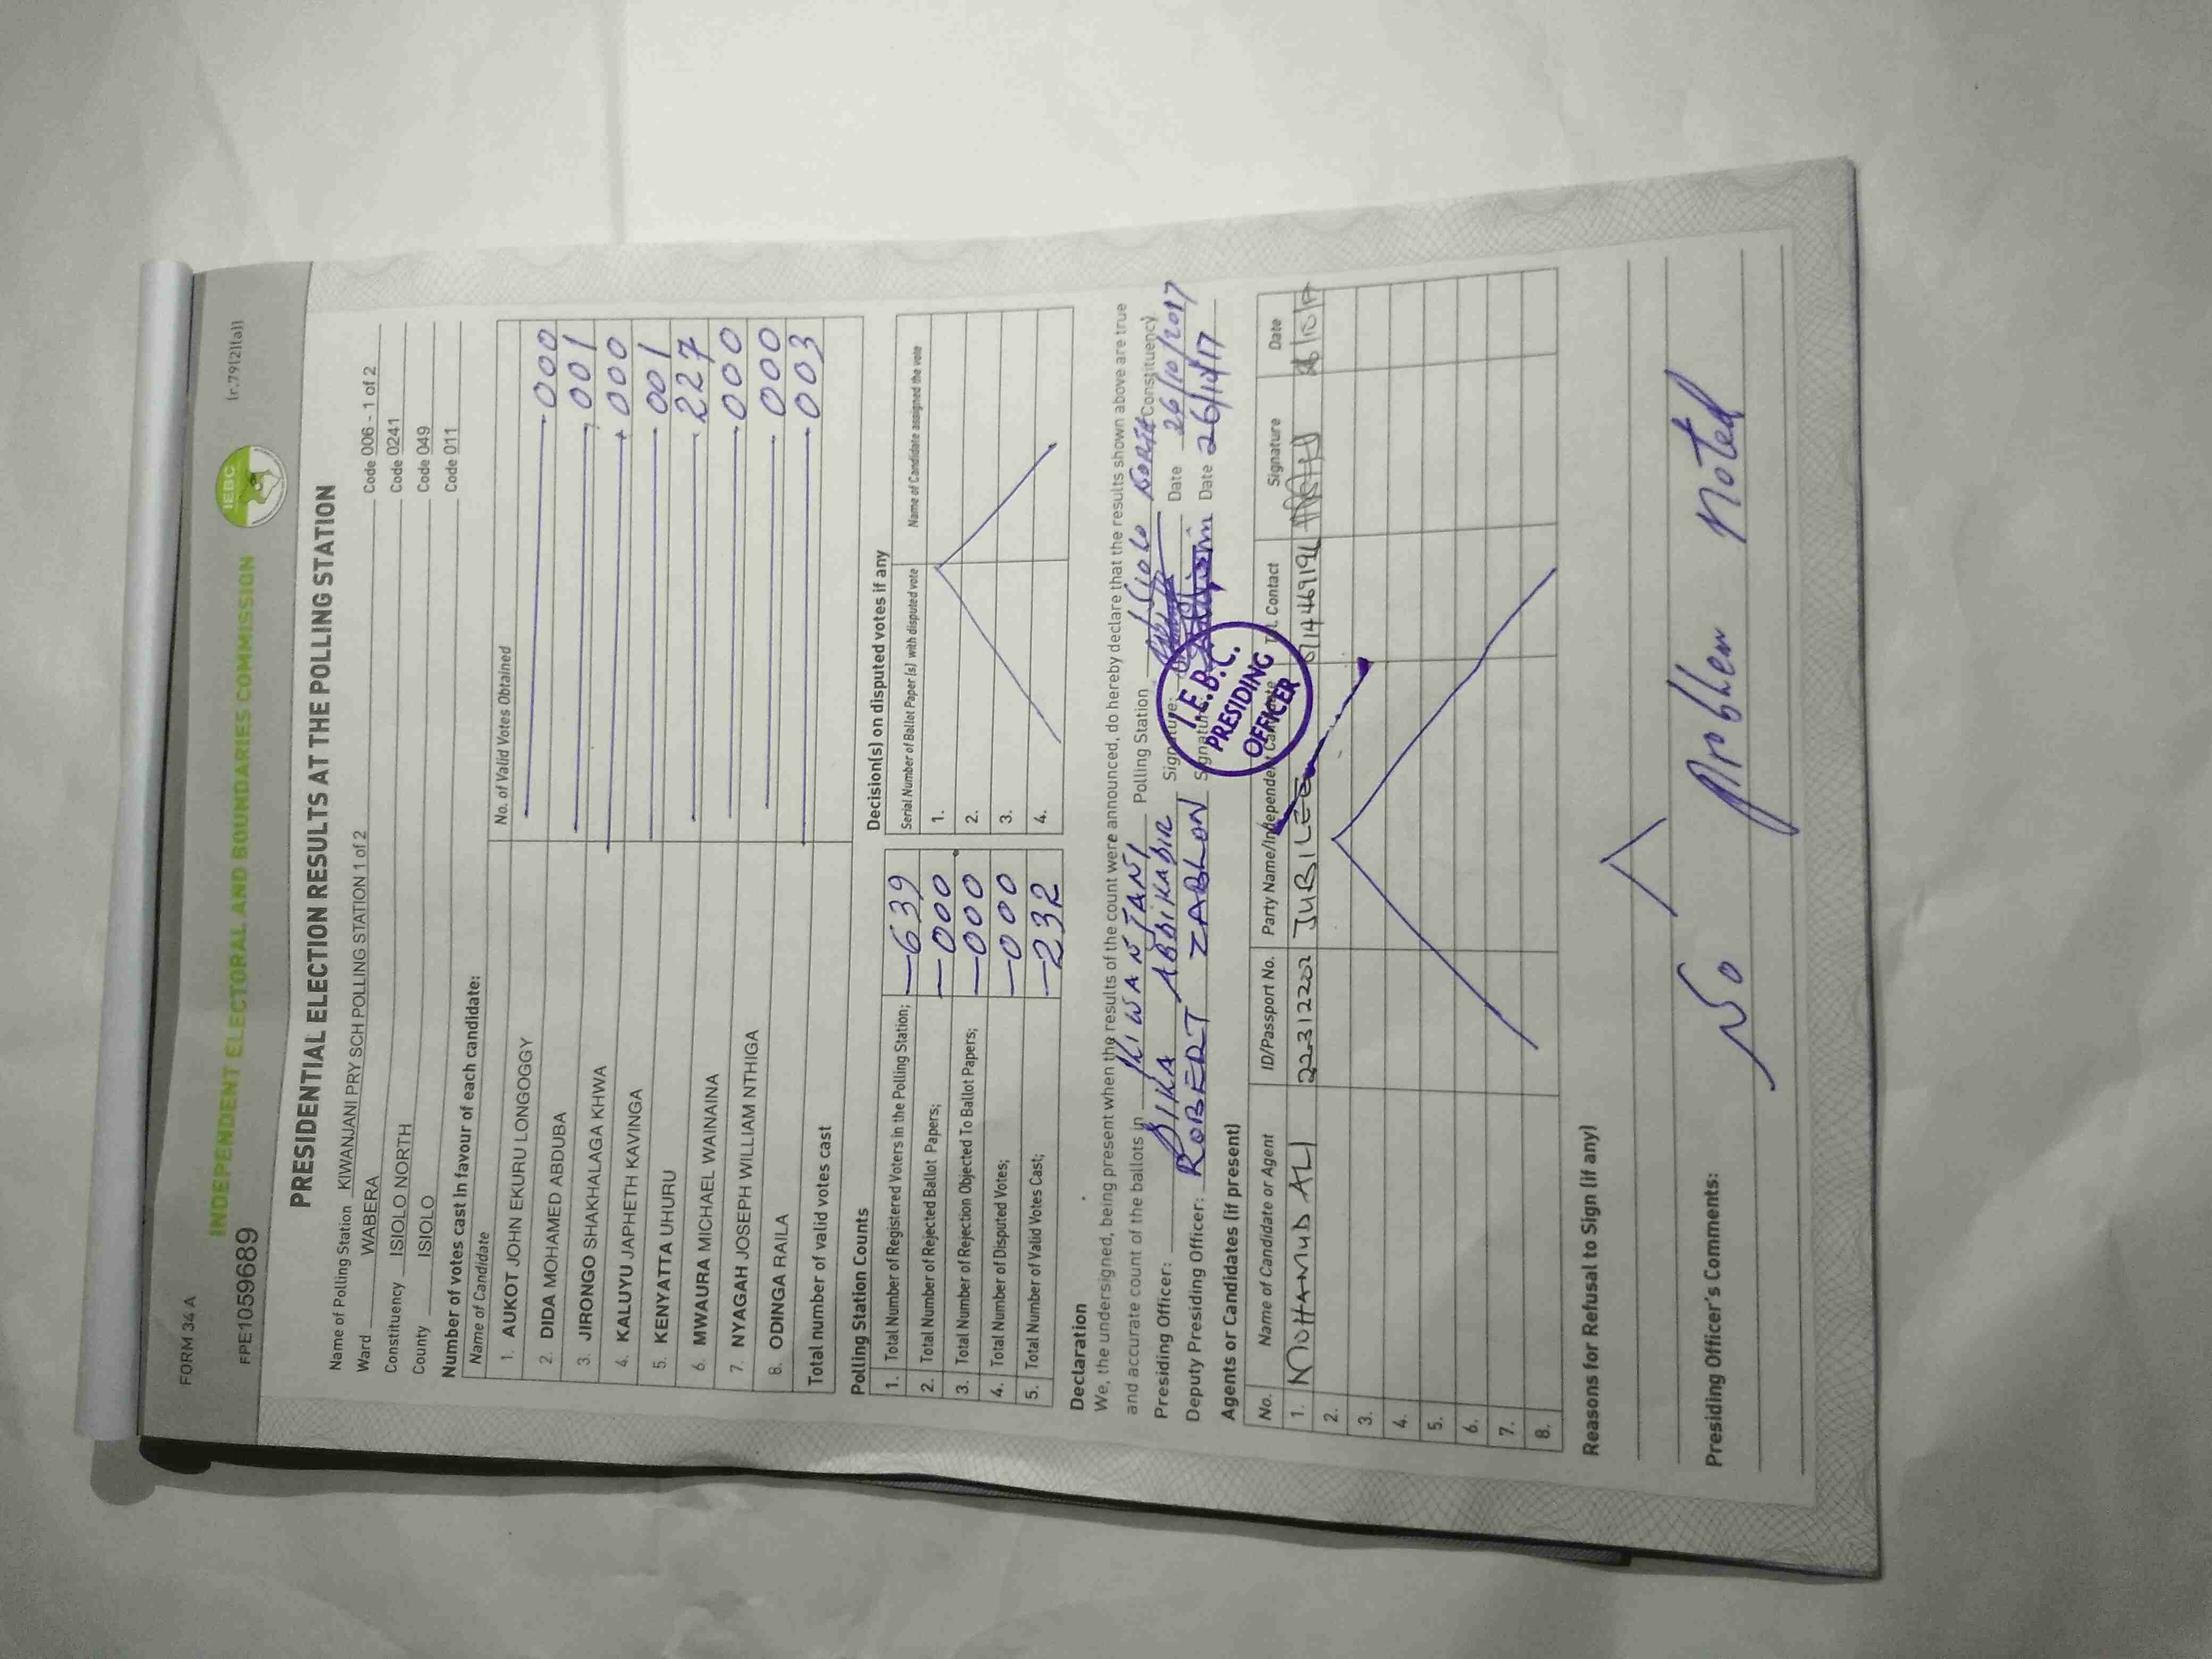 FORM 34 A
(r.79(2)(a))
INDEPENDENT ELECTORAL AND BOUNDARIES COMMISSION
IEBC
FPE1059689
PRESIDENTIAL ELECTION RESULTS AT THE POLLING STATION
Name of Polling Station KIWANJANI PRY SCH POLLING STATION 1 of 2 Code 006 - 1 of 2
Ward WABERA Code 0241
Constituency ISIOLO NORTH Code 049
County ISIOLO Code 011
Number of votes cast in favour of each candidate:
Name of Candidate No. of Valid Votes Obtained
1. AUKOT JOHN EKURU LONGOGGY 000
2. DIDA MOHAMED ABDUBA 001
3. JIRONGO SHAKHALAGA KHWA 000
4. KALUYU JAPHETH KAVINGA 001
5. KENYATTA UHURU 227
6. MWAURA MICHAEL WAINAINA 000
7. NYAGAH JOSEPH WILLIAM NTHIGA 000
8. ODINGA RAILA 003
Total number of valid votes cast
Polling Station Counts
1. Total Number of Registered Voters in the Polling Station; 639
2. Total Number of Rejected Ballot Papers; 000
3. Total Number of Rejection Objected To Ballot Papers; 000
4. Total Number of Disputed Votes; 000
5. Total Number of Valid Votes Cast; 232
Decision(s) on disputed votes if any
Serial Number of Ballot Paper(s) with disputed vote Name of Candidate assigned the vote
1.
2.
3.
4.
Declaration
We, the undersigned, being present when the results of the count were announced, do hereby declare that the results shown above are true
and accurate count of the ballots in KIWANJANI Polling Station Isiolo NORTH Constituency
Presiding Officer: DIKA ABDIKADIR Signature: Date 26/10/2017
Deputy Presiding Officer: ROBERT ZABLON Signature: Date 26/10/17
I.E.B.C.
PRESIDING
OFFICER
Agents or Candidates (if present)
No. Name of Candidate or Agent ID/Passport No. Party Name/Independent Candidate Tel. Contact Signature Date
1. MOHAMUD ALI 22312202 JUBILEE 26/10/17
2.
3.
4.
5.
6.
7.
8.
Reasons for Refusal to Sign (if any)
Presiding Officer's Comments:
No Problem Noted